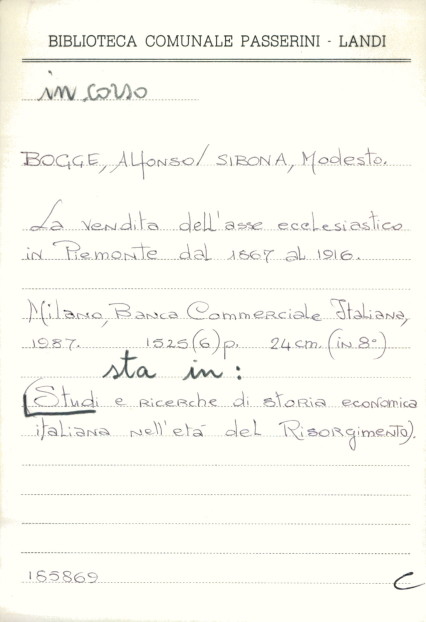 BIBLIOTECA COMUNALE PASSERINI - LANDI
in corso
BOGGE, Alfonso/ SIBONA, Modesto.
La vendita dell'asse ecclesiastico
in Piemonte dal 1867 al 1916.
Milano, Banca Commerciale Italiana,
1987. 1525(6)p. 24cm. (in 8°)
sta in:
(Studi e ricerche di storia economica
italiana nell'età del Risorgimento).
165869 C